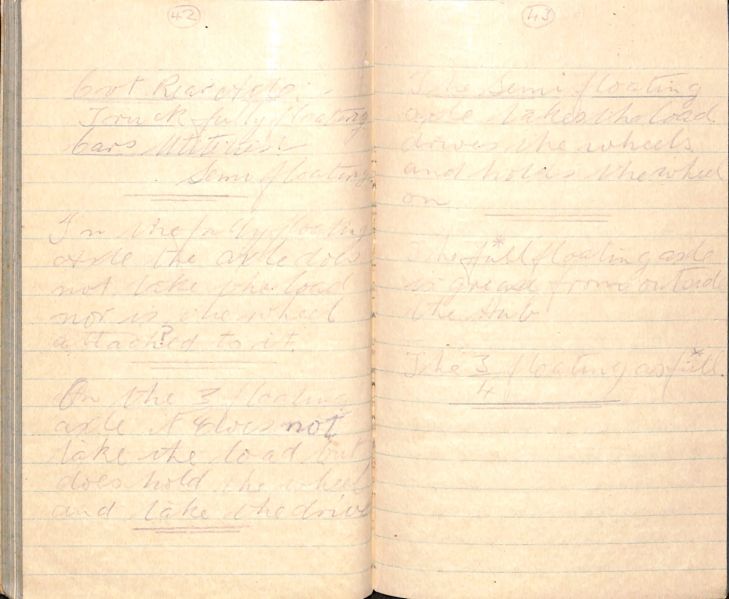 42
6 wt Rear axle.
Truck fully floating
Cars Utilities
Semi floating
In the fully floating
axle the axle does
not take the load
nor is the wheel
attached to it.
?
On the 3/4 floating
axle it does not
take the load but
does hold the wheel
and take the drive
43
The Semi floating
axle takes the load
drives the wheels
and holds the wheel
on
The full* floating axle
is grease from outside
the Hub
The 3/4 floating as full*.